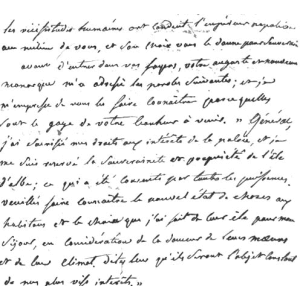 les vicissitudes humaines ont conduit l'empereur napoléon
au milieu de vous, et son choix vous le donne pour souverain
avant d'entrer dans vos foyers, votre auguste et nouveau
monarque m'a adressé les paroles suivantes; et je
m'empresse de vous les faire connaître parce quelles
sont le gage de votre bonheur à venir. « Général,
j'ai sacrifié mes droits aux intérêts de la patrie, et je
me suis réservé la souveraineté et propriété de l'île
d'elbe; ce qui a été consenti par toutes les puissances.
veuillez faire connaître le nouvel état de choses aux
habitans et le choix que j'ai fait de leur île pour mon
séjour, en considération de la douceur de leurs mœurs
et de leur climat. dites leur qu'ils seront l'objet constant
de mes plus vifs intérêts. »